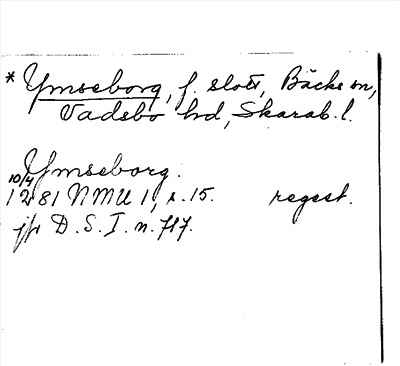 * Ymseborg, f. slott, Bäcks sn,
Vadsbo hd, Skarab. l.
Ymseborg.
10/4
1281 NMU 1, s. 15. regest.
jfr D. S. I. n. 717.